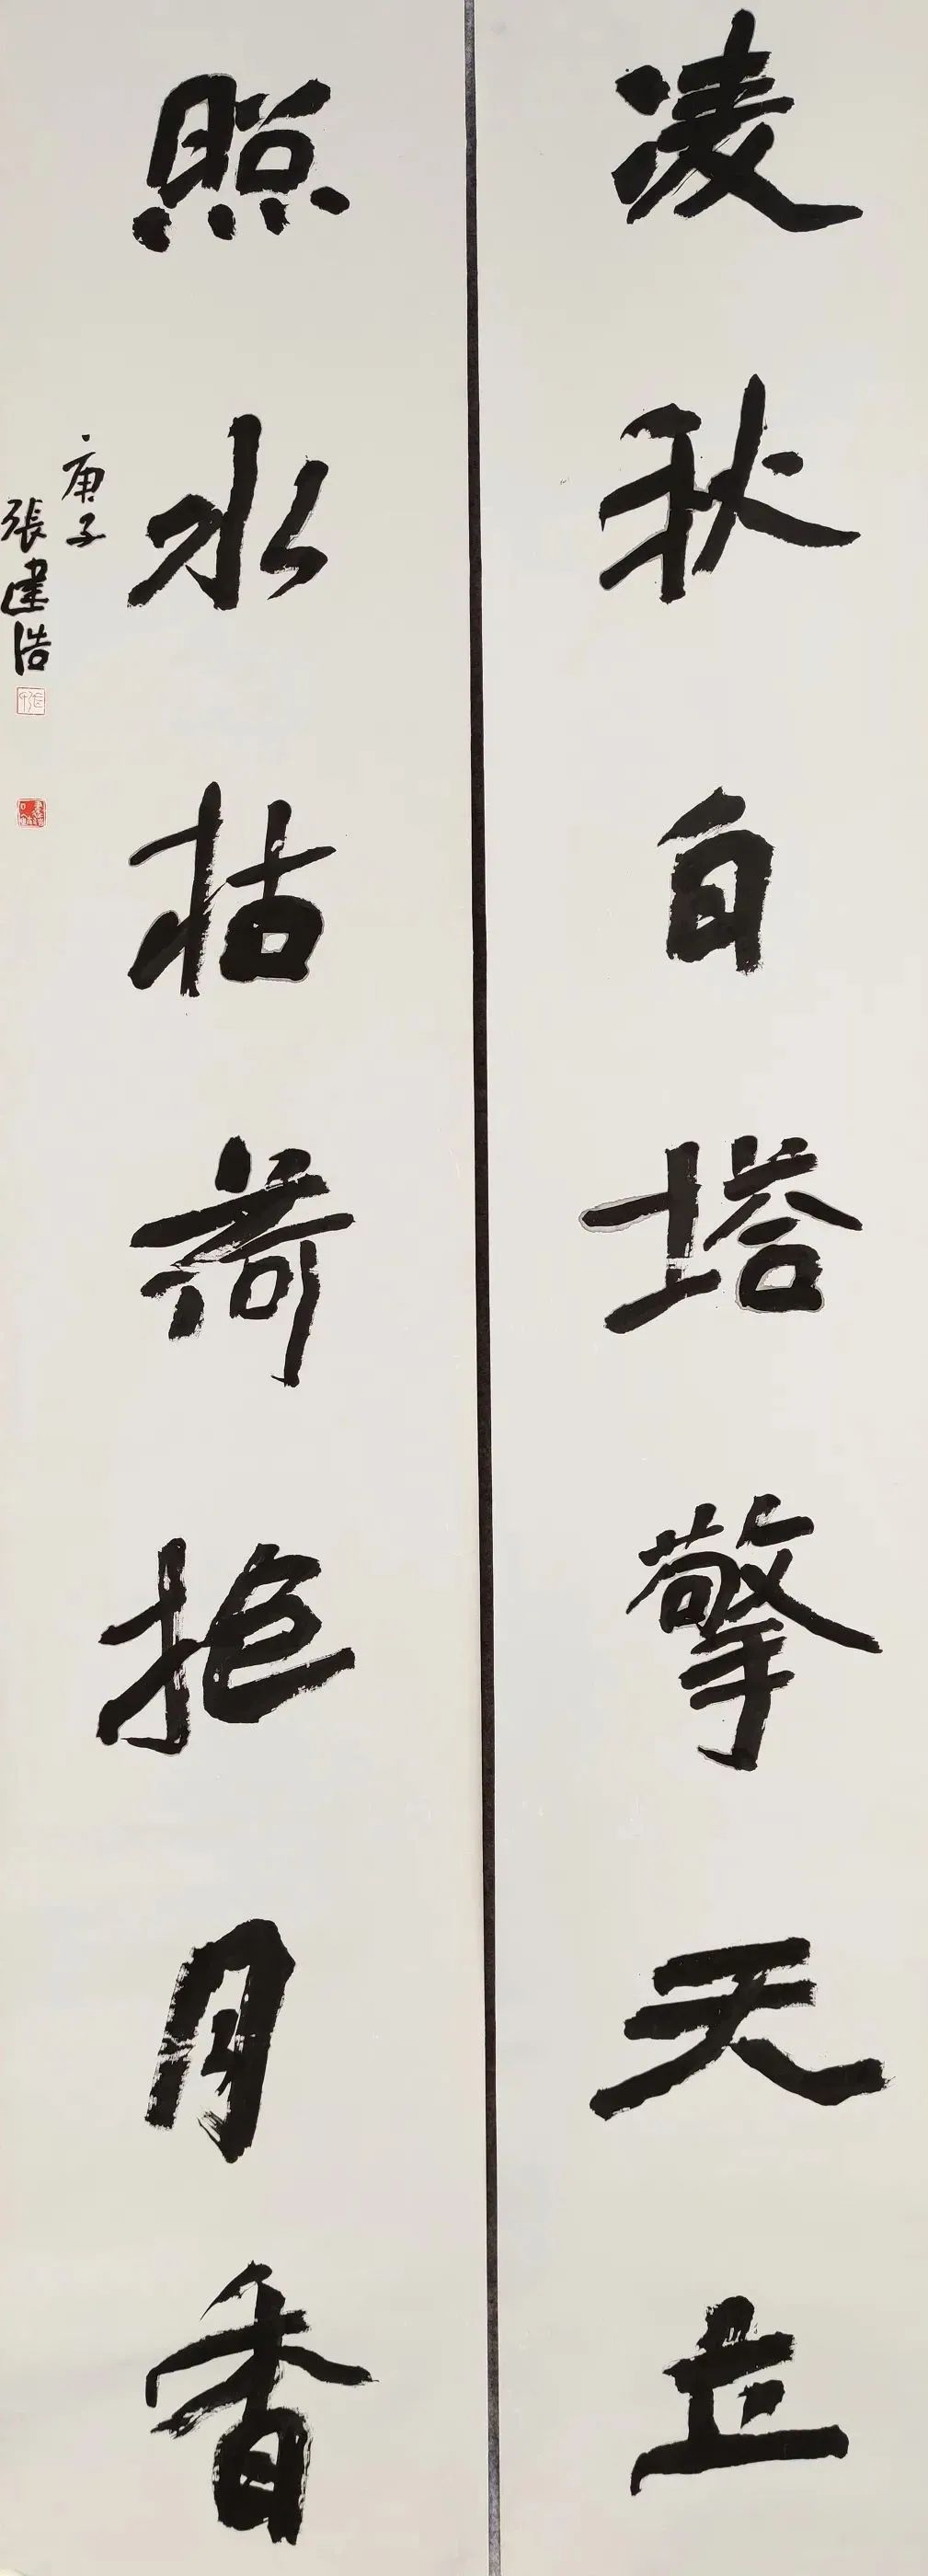 凌秋白塔擎天立
照水枯荷抱月香
庚子
張建浩